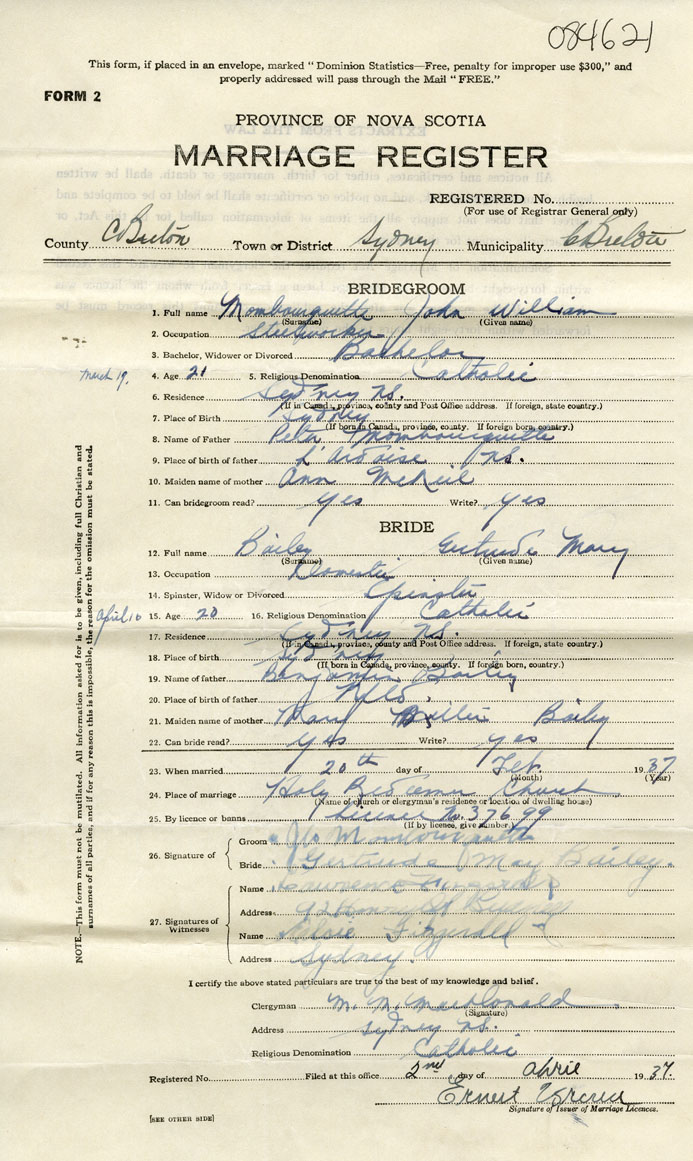 084621
This form, if placed in an envelope, marked "Dominion Statistics—Free, penalty for improper use $300," and
properly addressed will pass through the Mail "FREE."
FORM 2
PROVINCE OF NOVA SCOTIA
MARRIAGE REGISTER
REGISTERED No.
(For use of Registrar General only)
County C Breton Town or District Sydney Municipality C Breton
BRIDEGROOM
1. Full name Mombourquette John William
(Surname) (Given name)
2. Occupation Steelworker
3. Bachelor, Widower or Divorced Bachelor
March 19. 4. Age 21 5. Religious Denomination Catholic
6. Residence Sydney N.S.
(If in Canada, province, county and Post Office address. If foreign, state country.)
7. Place of Birth Sydney
(If born in Canada, province, county. If foreign born, country.)
8. Name of Father Peter Mombourquette
9. Place of birth of father L'Ardoise N.S.
10. Maiden name of mother Ann McNeil
11. Can bridegroom read? yes Write? yes
BRIDE
12. Full name Bailey Gertrude Mary
(Surname) (Given name)
13. Occupation Domestic
14. Spinster, Widow or Divorced Spinster
April 10 15. Age 20 16. Religious Denomination Catholic
17. Residence Sydney N.S.
(If in Canada, province, county and Post Office address. If foreign, state country.)
18. Place of birth Sydney
(If born in Canada, province, county. If foreign born, country.)
19. Name of father Benjamin Bailey
20. Place of birth of father Nfld.
21. Maiden name of mother Mary Bailey
22. Can bride read? yes Write? yes
23. When married 20th day of Feb. 1937
(Month) (Year)
24. Place of marriage Holy Redeemer Church
(Name of church or clergyman's residence or location of dwelling house)
25. By licence or banns License No. 37699
(If by licence, give number.)
26. Signature of Groom Mombourquette
Bride Gertrude May Bailey.
27. Signatures of Witnesses
Name Lawrence
Address Sydney
Name Fitzgerald
Address Sydney.
I certify the above stated particulars are true to the best of my knowledge and belief.
Clergyman M. N. MacDonald
(Signature)
Address Sydney N.S.
Religious Denomination Catholic
Registered No. Filed at this office 2nd day of April 1937.
Ernest
Signature of Issuer of Marriage Licences.
[SEE OTHER SIDE]
NOTE.—This form must not be mutilated. All information asked for is to be given, including full Christian and
surnames of all parties, and if for any reason this is impossible, the reason for the omission must be stated.